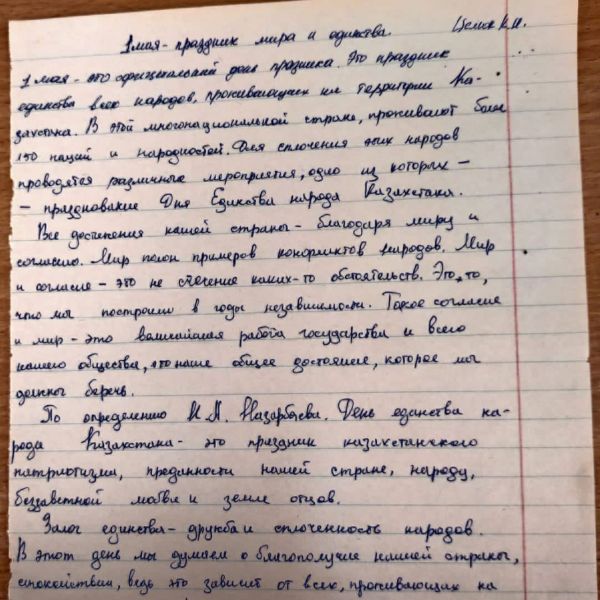 1 мая - праздник мира и единства. Целик К.И.
1 мая - это официальный день праздника. Это праздник
единства всех народов, проживающих на территории Ка-
захстана. В этой многонациональной стране, проживают более
130 наций и народностей. Для сплочения этих народов
проводятся различные мероприятия, одно из которых -
- празднование Дня Единства народа Казахстана.
Все достижения нашей страны - благодаря миру и
согласию. Мир полон примеров конфликтов народов. Мир
и согласие - это не стечение каких-то обстоятельств. Это, то,
что мы построили в годы независимости. Такое согласие
и мир - это величайшая работа государства и всего
нашего общества, это наше общее достояние, которое мы
должны беречь.
По определению Н.А. Назарбаева. День единства на-
рода Казахстана - это праздник казахстанского
патриотизма, преданности нашей стране, народу,
беззаветной любви к земле отцов.
Залог единства - дружба и сплоченность народов.
В этот день мы думаем о благополучие нашей страны,
спокойствии, ведь это зависит от всех, проживающих на